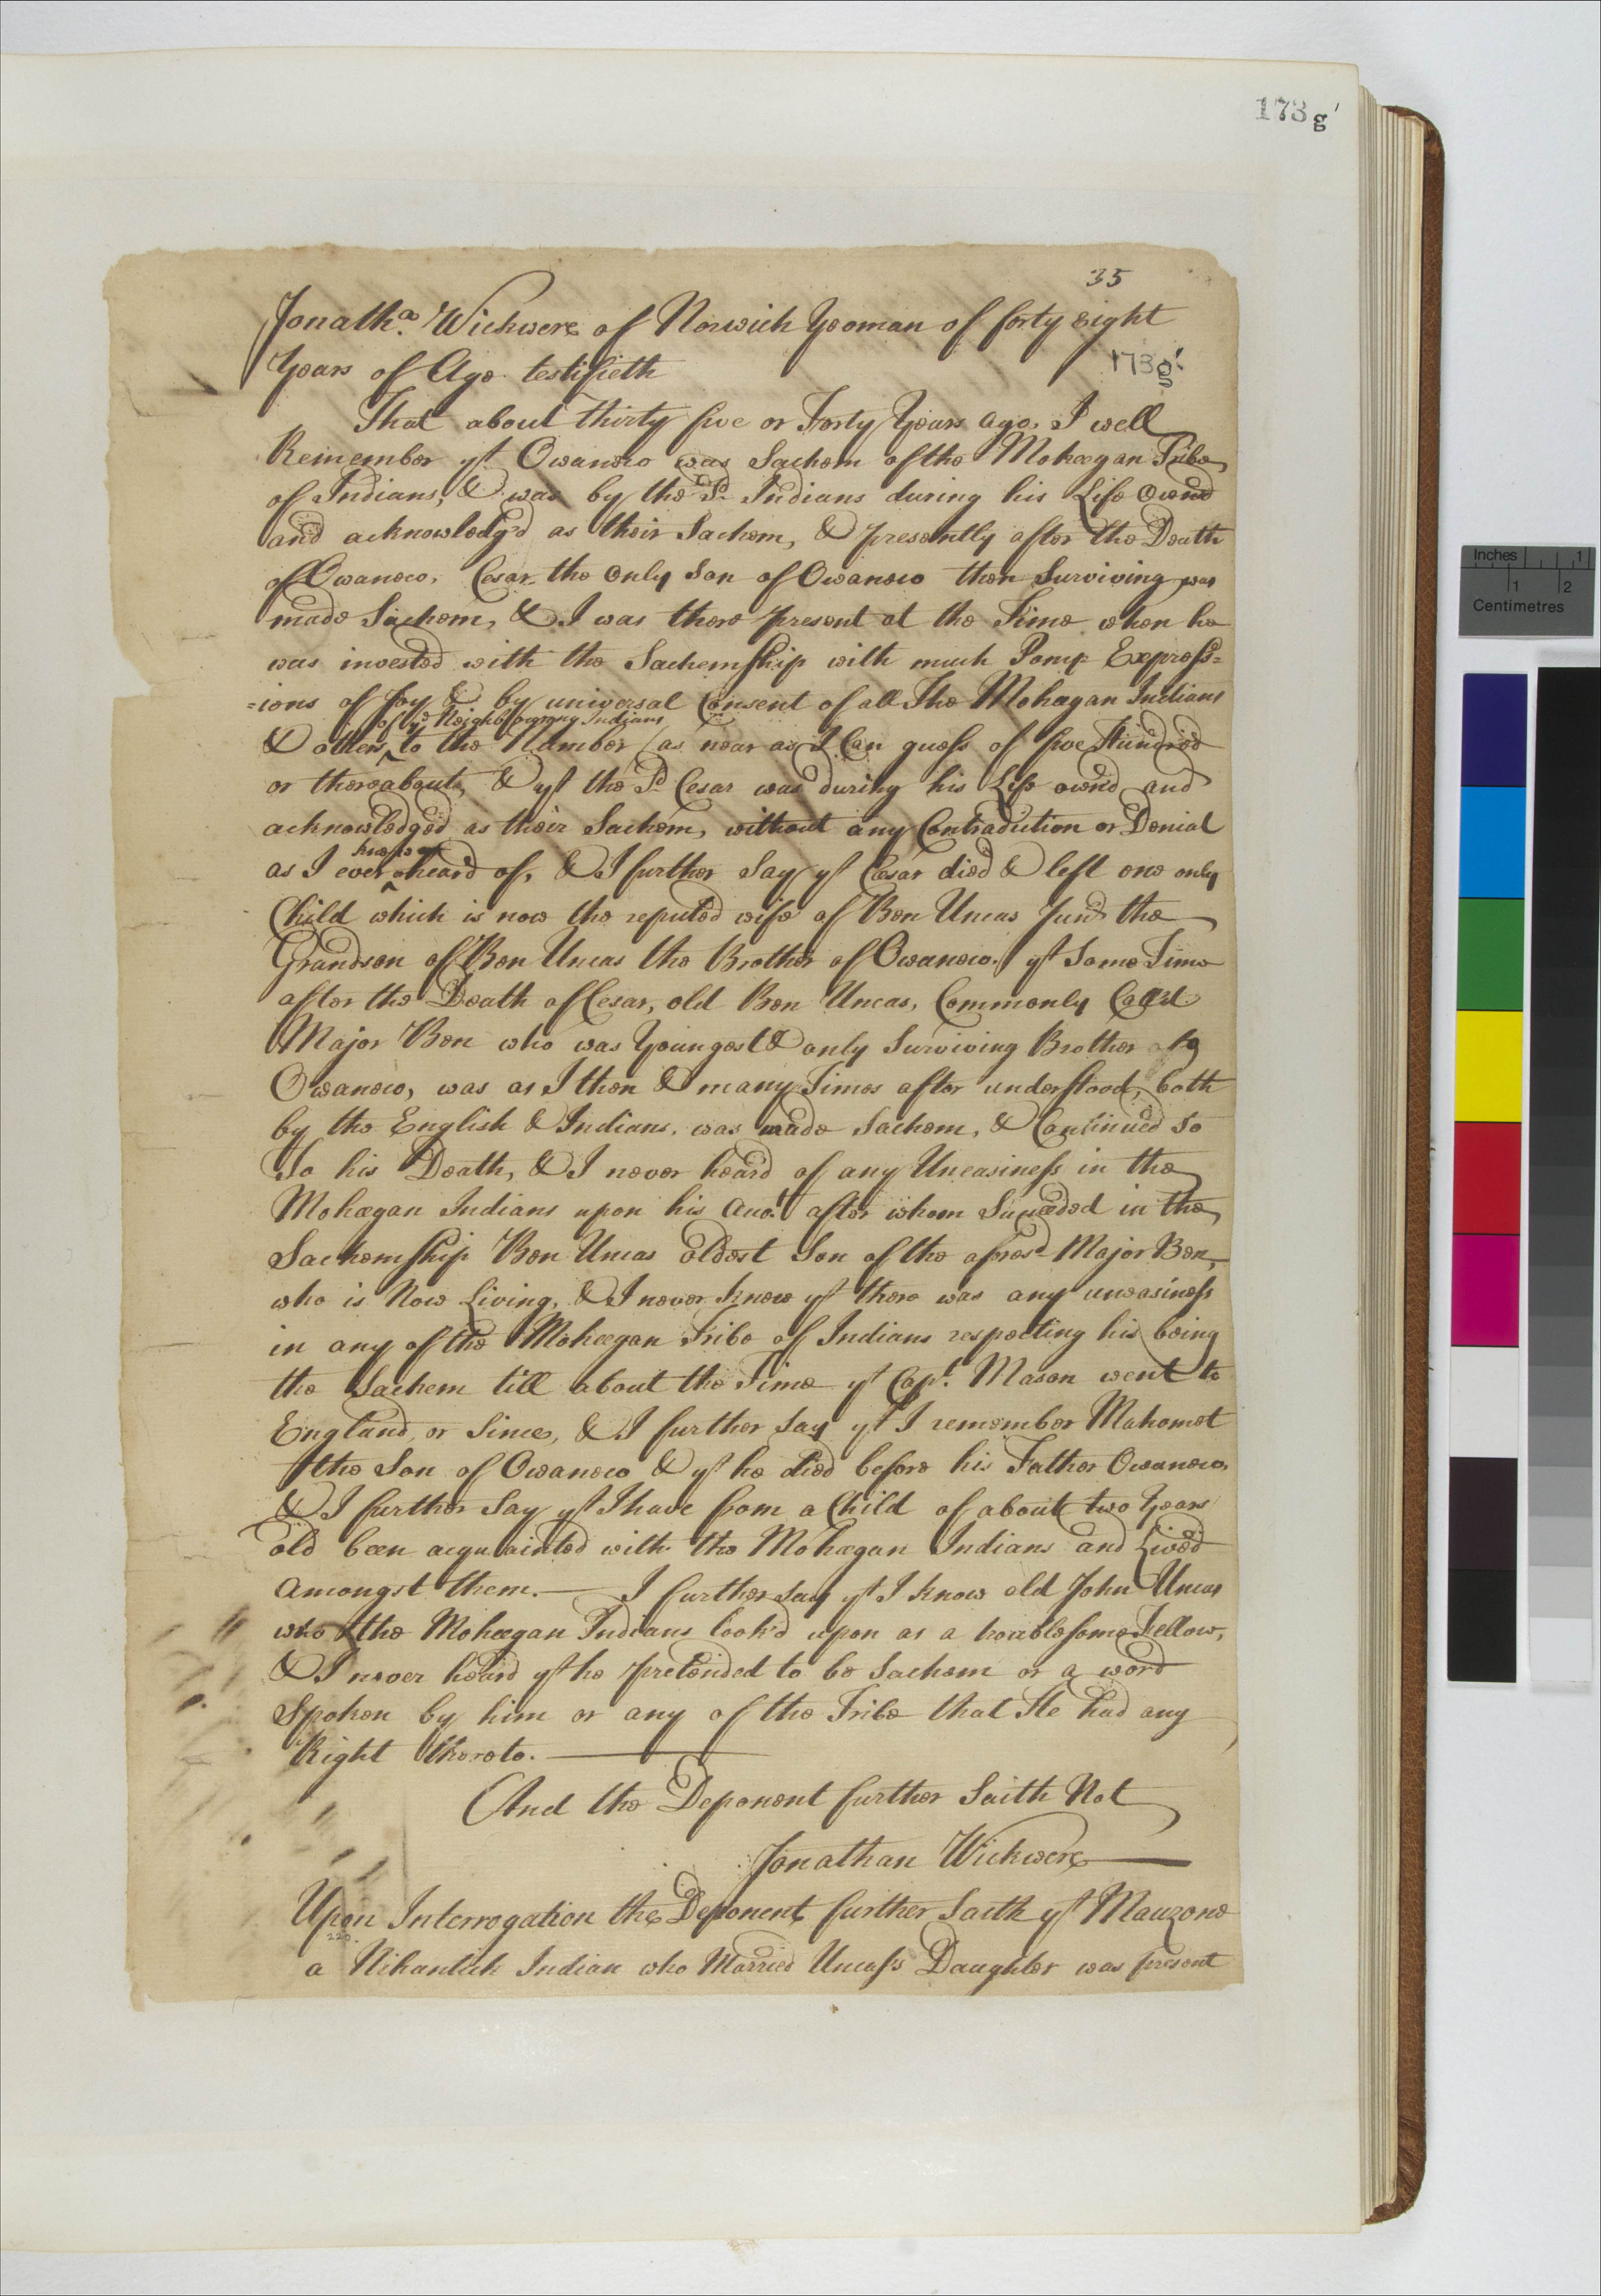 173 g'
35
Jonath.n Wickwere of Norwich Yeoman of forty eight
173g'
Years of Age testifieth
That about thirty five or Forty Years ago, I well
Remember yt Owaneco was Sachem of the Moheegan Tribe
of Indians, & was by the Sd Indians during his Life Owned
and acknowledg'd as their Sachem, & presently after the Death
of Owaneco, Cesar the only Son of Owaneco then Surviving was
made Sachem, & I was there present at the Time when he
was invested with the Sachemship with much Pomp Express=
=ions of Joy & by universal Consent of all The Mohegan Indians
of ye Neighbouring Indians
& others to the Number (as near as I Can guess of five Hundred
or thereabouts, & yt the Sd Cesar was during his Life own'd and
acknowledged as their Sachem, without any Contradiction or Denial
as I ever heard of, & I further Say yt Cesar died & left one only
Child which is now the reputed wife of Ben Uncas Junr the
Grandson of Ben Uncas the Brother of Owaneco. yt Some Time
after the Death of Cesar, old Ben Uncas, Commonly Call'd
Major Ben who was Youngest & only Surviving Brother
Owaneco, was as I then & many Times after understood, both
by the English & Indians, was made Sachem, & Continued So
To his Death, & I never heard of any Uneasiness in the
Mohegan Indians upon his Acco.t after whom Succeeded in the
Sachemship Ben Uncas oldest Son of the aforesd Major Ben,
who is Now Living, & I never knew yt there was any uneasiness
in any of the Moheegan Tribe of Indians respecting his being
the Sachem till about the Time yt Capt. Mason went to
England, or Since, & I further Say yt I remember Mahomet
the Son of Owaneco & yt he died before his Father Owaneco,
& I further Say yt I have from a Child of about two Years
old been acquainted with the Mohegan Indians and Lived
amongst them. — I further say yt I know old John Uncas
who the Moheegan Indians look'd upon as a troublesome Fellow,
& I never heard yt he pretended to be Sachem or a word
Spoken by him or any of the Tribe that He had any
Right thereto. —
And the Deponent further Saith Not
Jonathan Wickwere —
Upon Interrogation the Deponent further Saith yt Mauzone
220.
a Nihantick Indian who Married Uncass Daughter was present
Inches 1
1 2
Centimetres